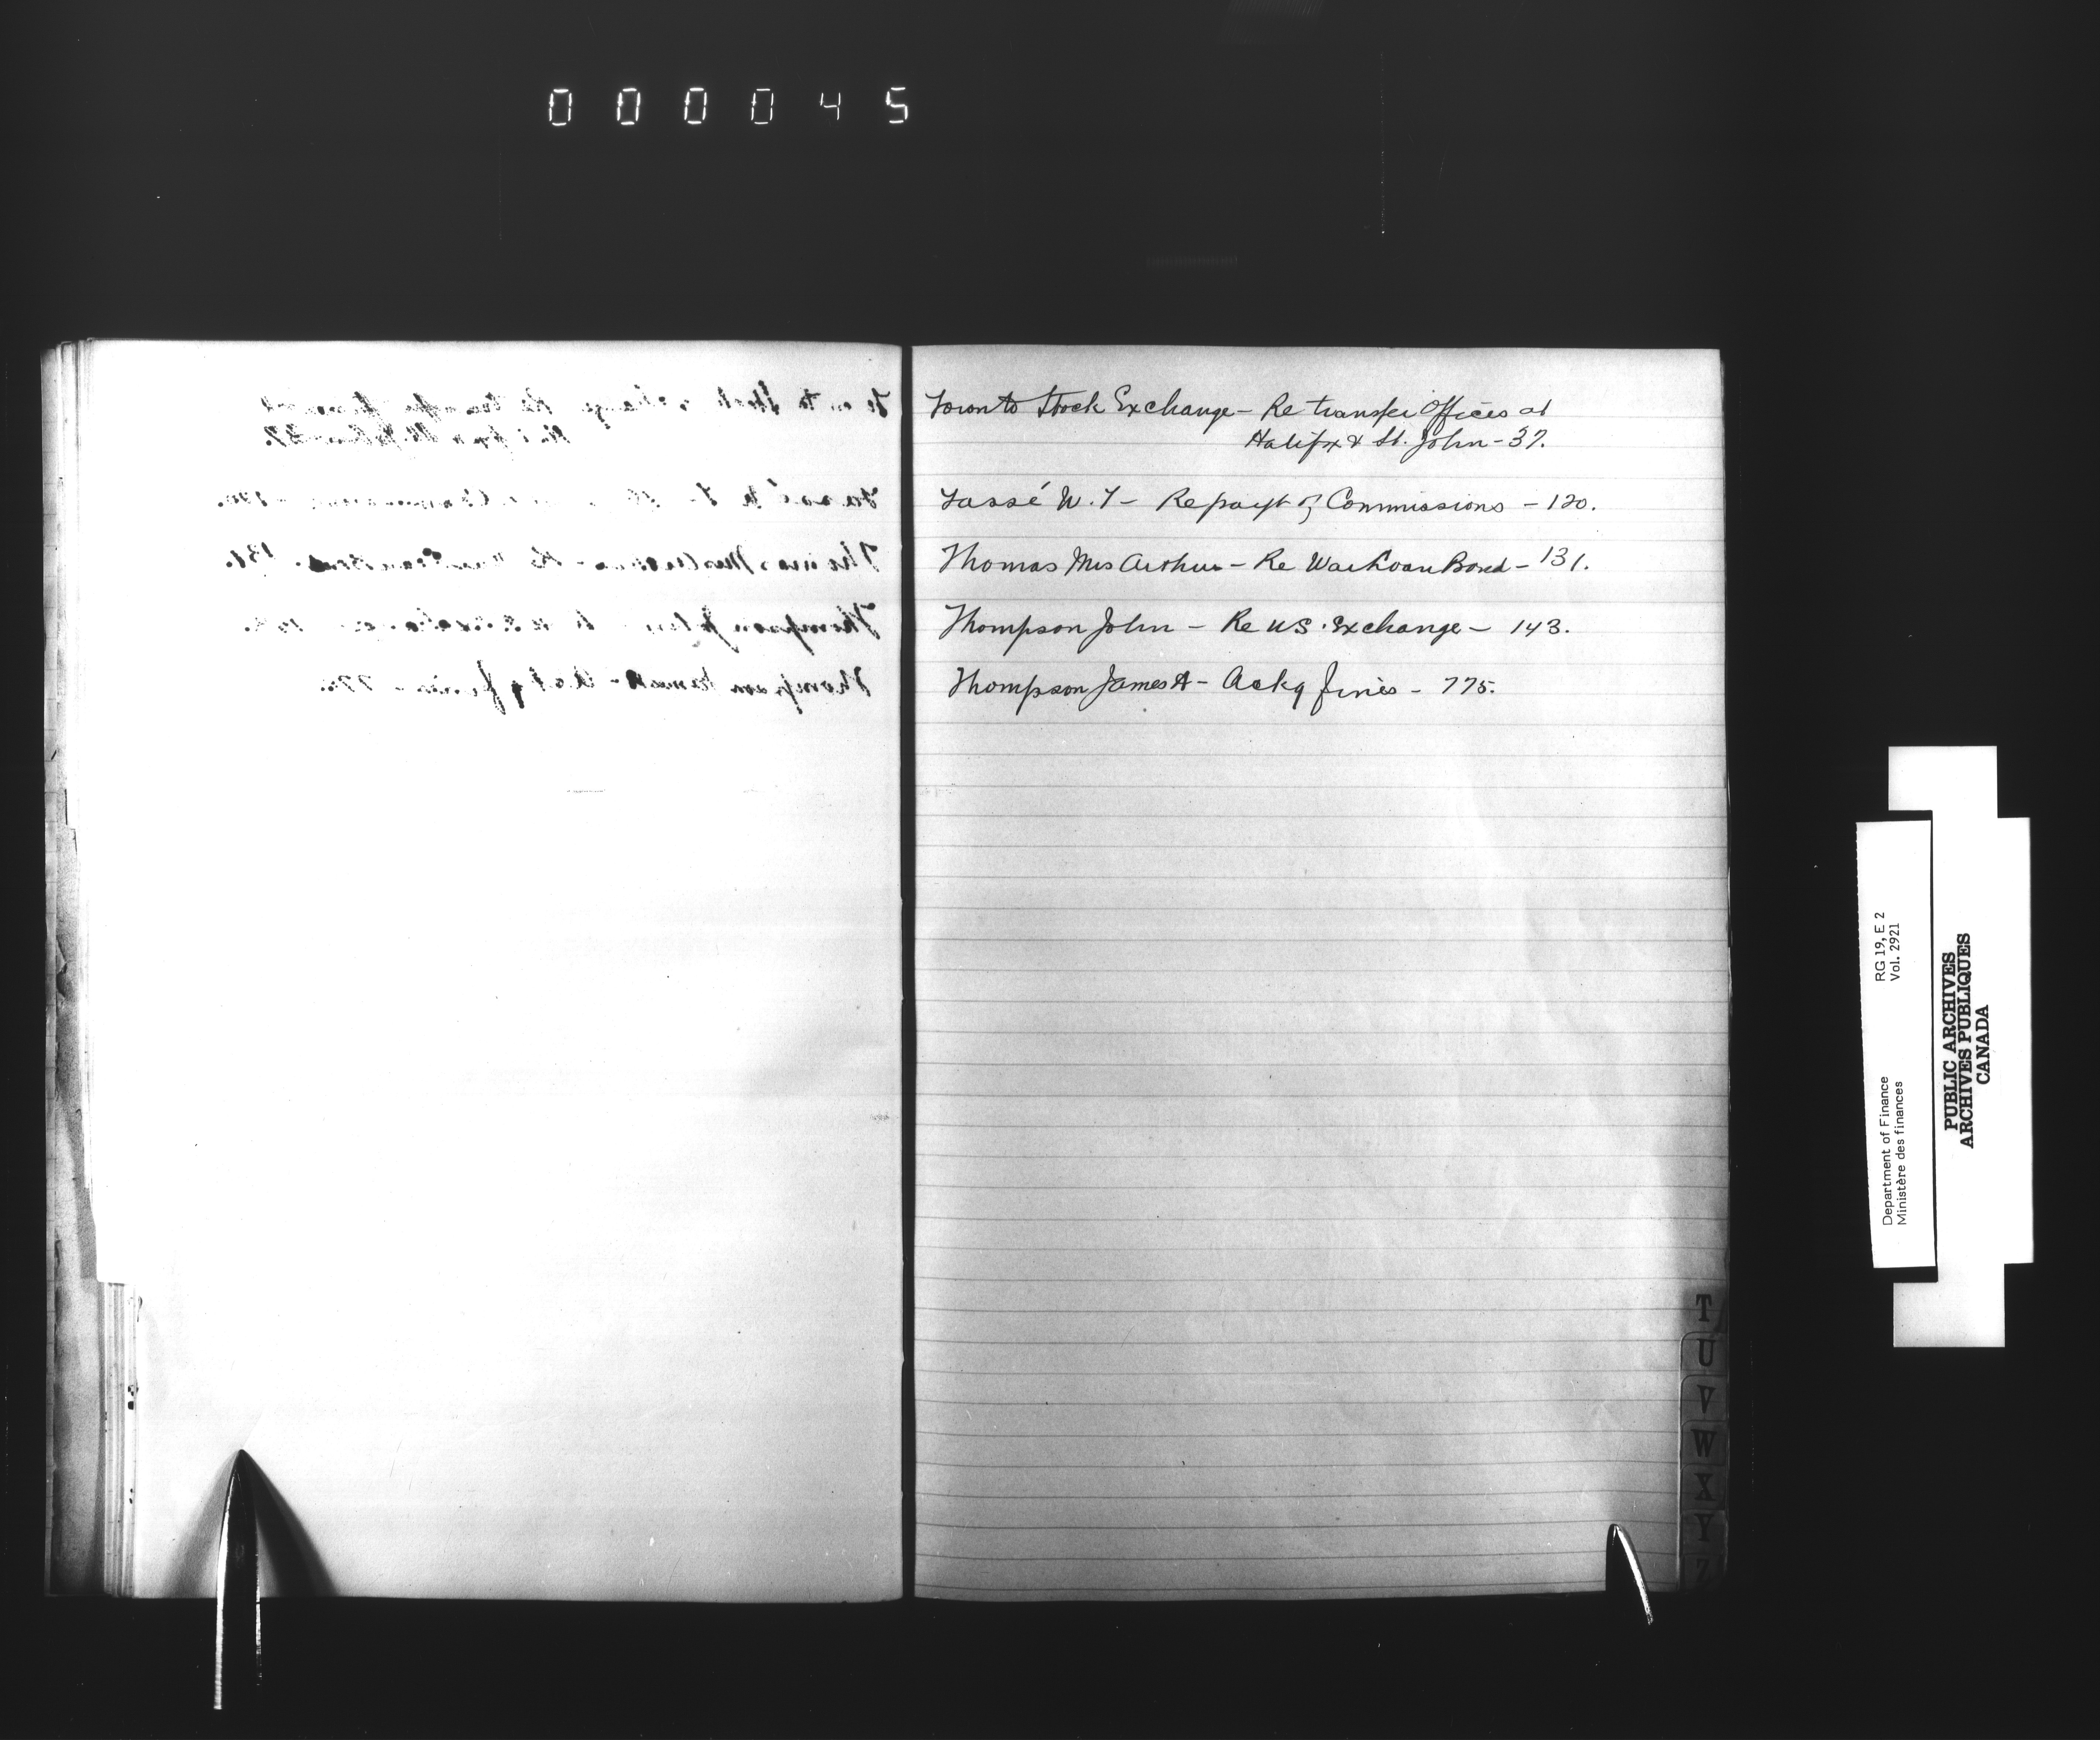 000045
Toronto Stock Exchange - Re transfer Offices at
Halifax & St. John - 37.
Tassé W.T - Re payt of Commissions - 120.
Thomas Mrs Arthur - Re War Loan Bond - 131.
Thompson John - Re US. Exchange - 143.
Thompson James A - Ackg - 775.
T
U
V
W
X
Y
Z
Department of Finance
Ministère des finances
RG 19, E 2
Vol. 2921
PUBLIC ARCHIVES
ARCHIVES PUBLIQUES
CANADA